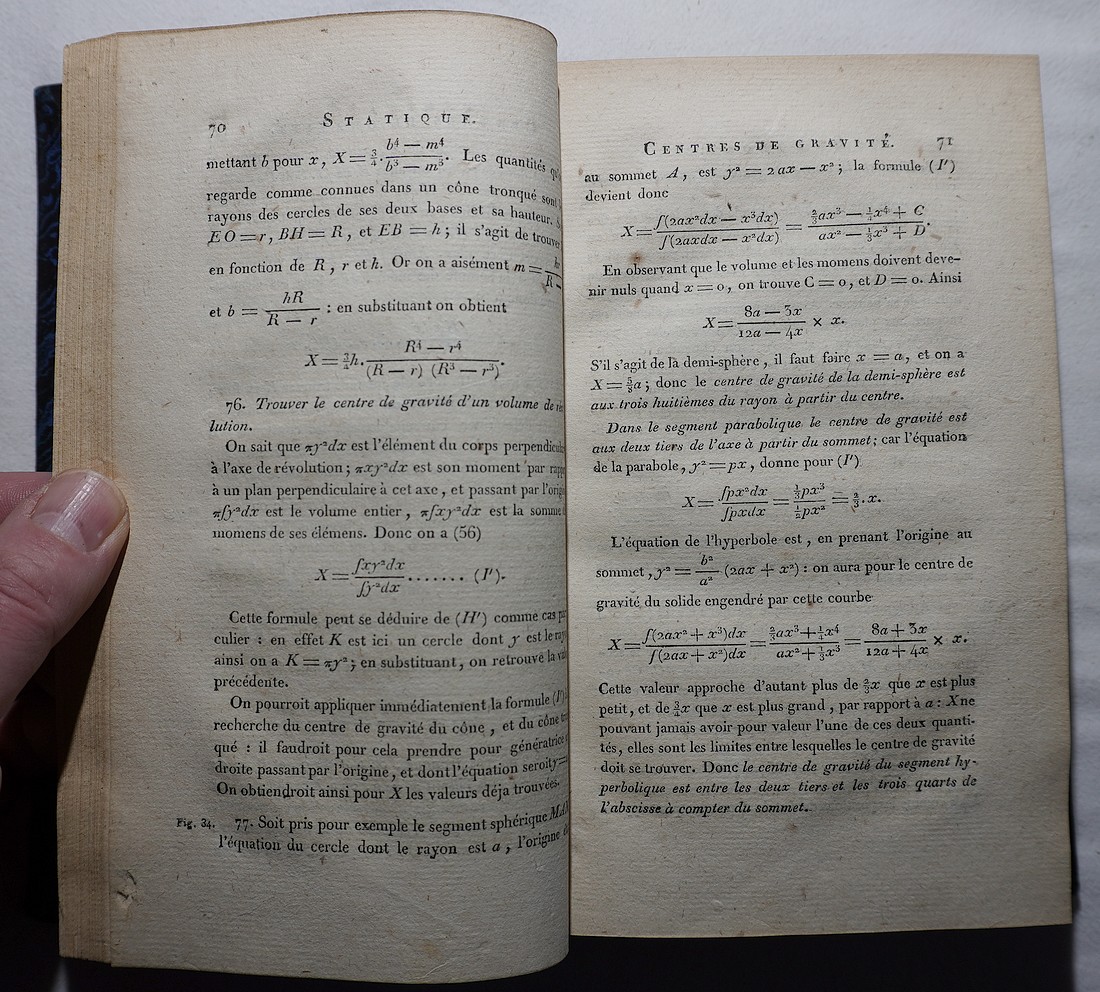 70 STATIQUE.
mettant b pour x, X = 3/4 . (b⁴ — m⁴)/(b³ — m³). Les quantités
regarde comme connues dans un cône tronqué sont
rayons des cercles de ses deux bases et sa hauteur.
EO = r, BH = R, et EB = h; il s'agit de trouver
en fonction de R, r et h. Or on a aisément m =
et b = hR/(R — r) : en substituant on obtient
X = 3/4 h . (R⁴ — r⁴)/((R — r) (R³ — r³)).
76. Trouver le centre de gravité d'un volume de
lution.
On sait que πy²dx est l'élément du corps
à l'axe de révolution; πxy²dx est son moment par
à un plan perpendiculaire à cet axe, et passant par
π∫y²dx est le volume entier, π∫xy²dx est la somme
momens de ses élémens. Donc on a (56)
X = ∫xy²dx/∫y²dx ....... (I').
Cette formule peut se déduire de (H') comme cas
culier : en effet K est ici un cercle dont y est le
ainsi on a K = πy²; en substituant, on retrouve la
précédente.
On pourroit appliquer immédiatement la formule (I')
recherche du centre de gravité du cône, et du cône
qué : il faudroit pour cela prendre pour génératrice
droite passant par l'origine, et dont l'équation seroit y =
On obtiendroit ainsi pour X les valeurs déja trouvées.
Fig. 34. 77. Soit pris pour exemple le segment sphérique
l'équation du cercle dont le rayon est a, l'origine
CENTRES DE GRAVITÉ. 71
au sommet A, est y² = 2ax — x²; la formule (I')
devient donc
X = ∫(2ax²dx — x³dx)/∫(2axdx — x²dx) = (2/3 ax³ — 1/4 x⁴ + C)/(ax² — 1/3 x³ + D).
En observant que le volume et les momens doivent deve-
nir nuls quand x = 0, on trouve C = 0, et D = 0. Ainsi
X = (8a — 3x)/(12a — 4x) × x.
S'il s'agit de la demi-sphère, il faut faire x = a, et on a
X = 5/8 a; donc le centre de gravité de la demi-sphère est
aux trois huitièmes du rayon à partir du centre.
Dans le segment parabolique le centre de gravité est
aux deux tiers de l'axe à partir du sommet; car l'équation
de la parabole, y² = px, donne pour (I')
X = ∫px²dx/∫pxdx = (1/3 px³)/(1/2 px²) = 2/3 . x.
L'équation de l'hyperbole est, en prenant l'origine au
sommet, y² = b²/a² (2ax + x²) : on aura pour le centre de
gravité du solide engendré par cette courbe
X = ∫(2ax² + x³)dx/∫(2ax + x²)dx = (2/3 ax³ + 1/4 x⁴)/(ax² + 1/3 x³) = (8a + 3x)/(12a + 4x) × x.
Cette valeur approche d'autant plus de 2/3 x que x est plus
petit, et de 3/4 x que x est plus grand, par rapport à a : X ne
pouvant jamais avoir pour valeur l'une de ces deux quanti-
tés, elles sont les limites entre lesquelles le centre de gravité
doit se trouver. Donc le centre de gravité du segment hy-
perbolique est entre les deux tiers et les trois quarts de
l'abscisse à compter du sommet.